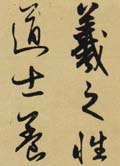 羲之性
道士養